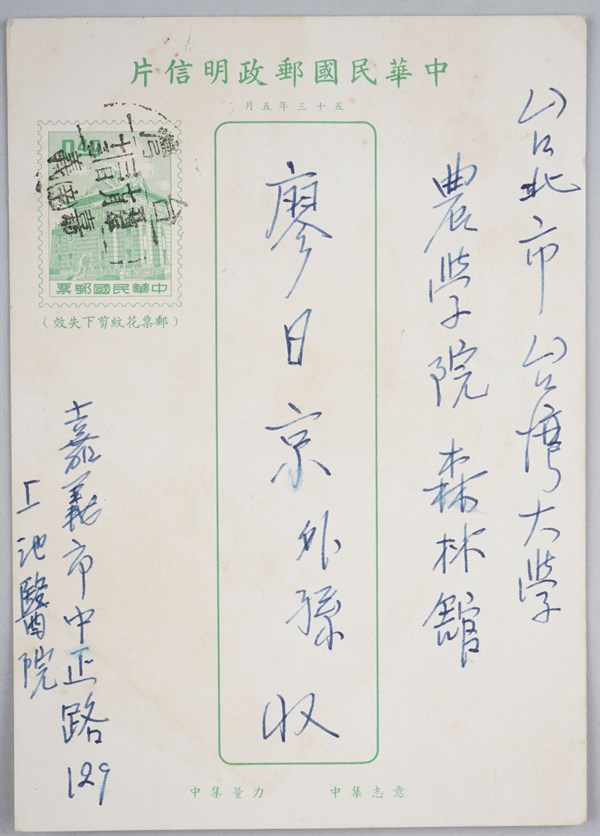 中華民國郵政明信片
五十三年五月
0.40
中華民國郵票
(郵票花紋剪下失效)
台北市台灣大學
農學院森林館
廖日京外孫收
嘉義市中正路129
上池醫院
意志集中 力量集中